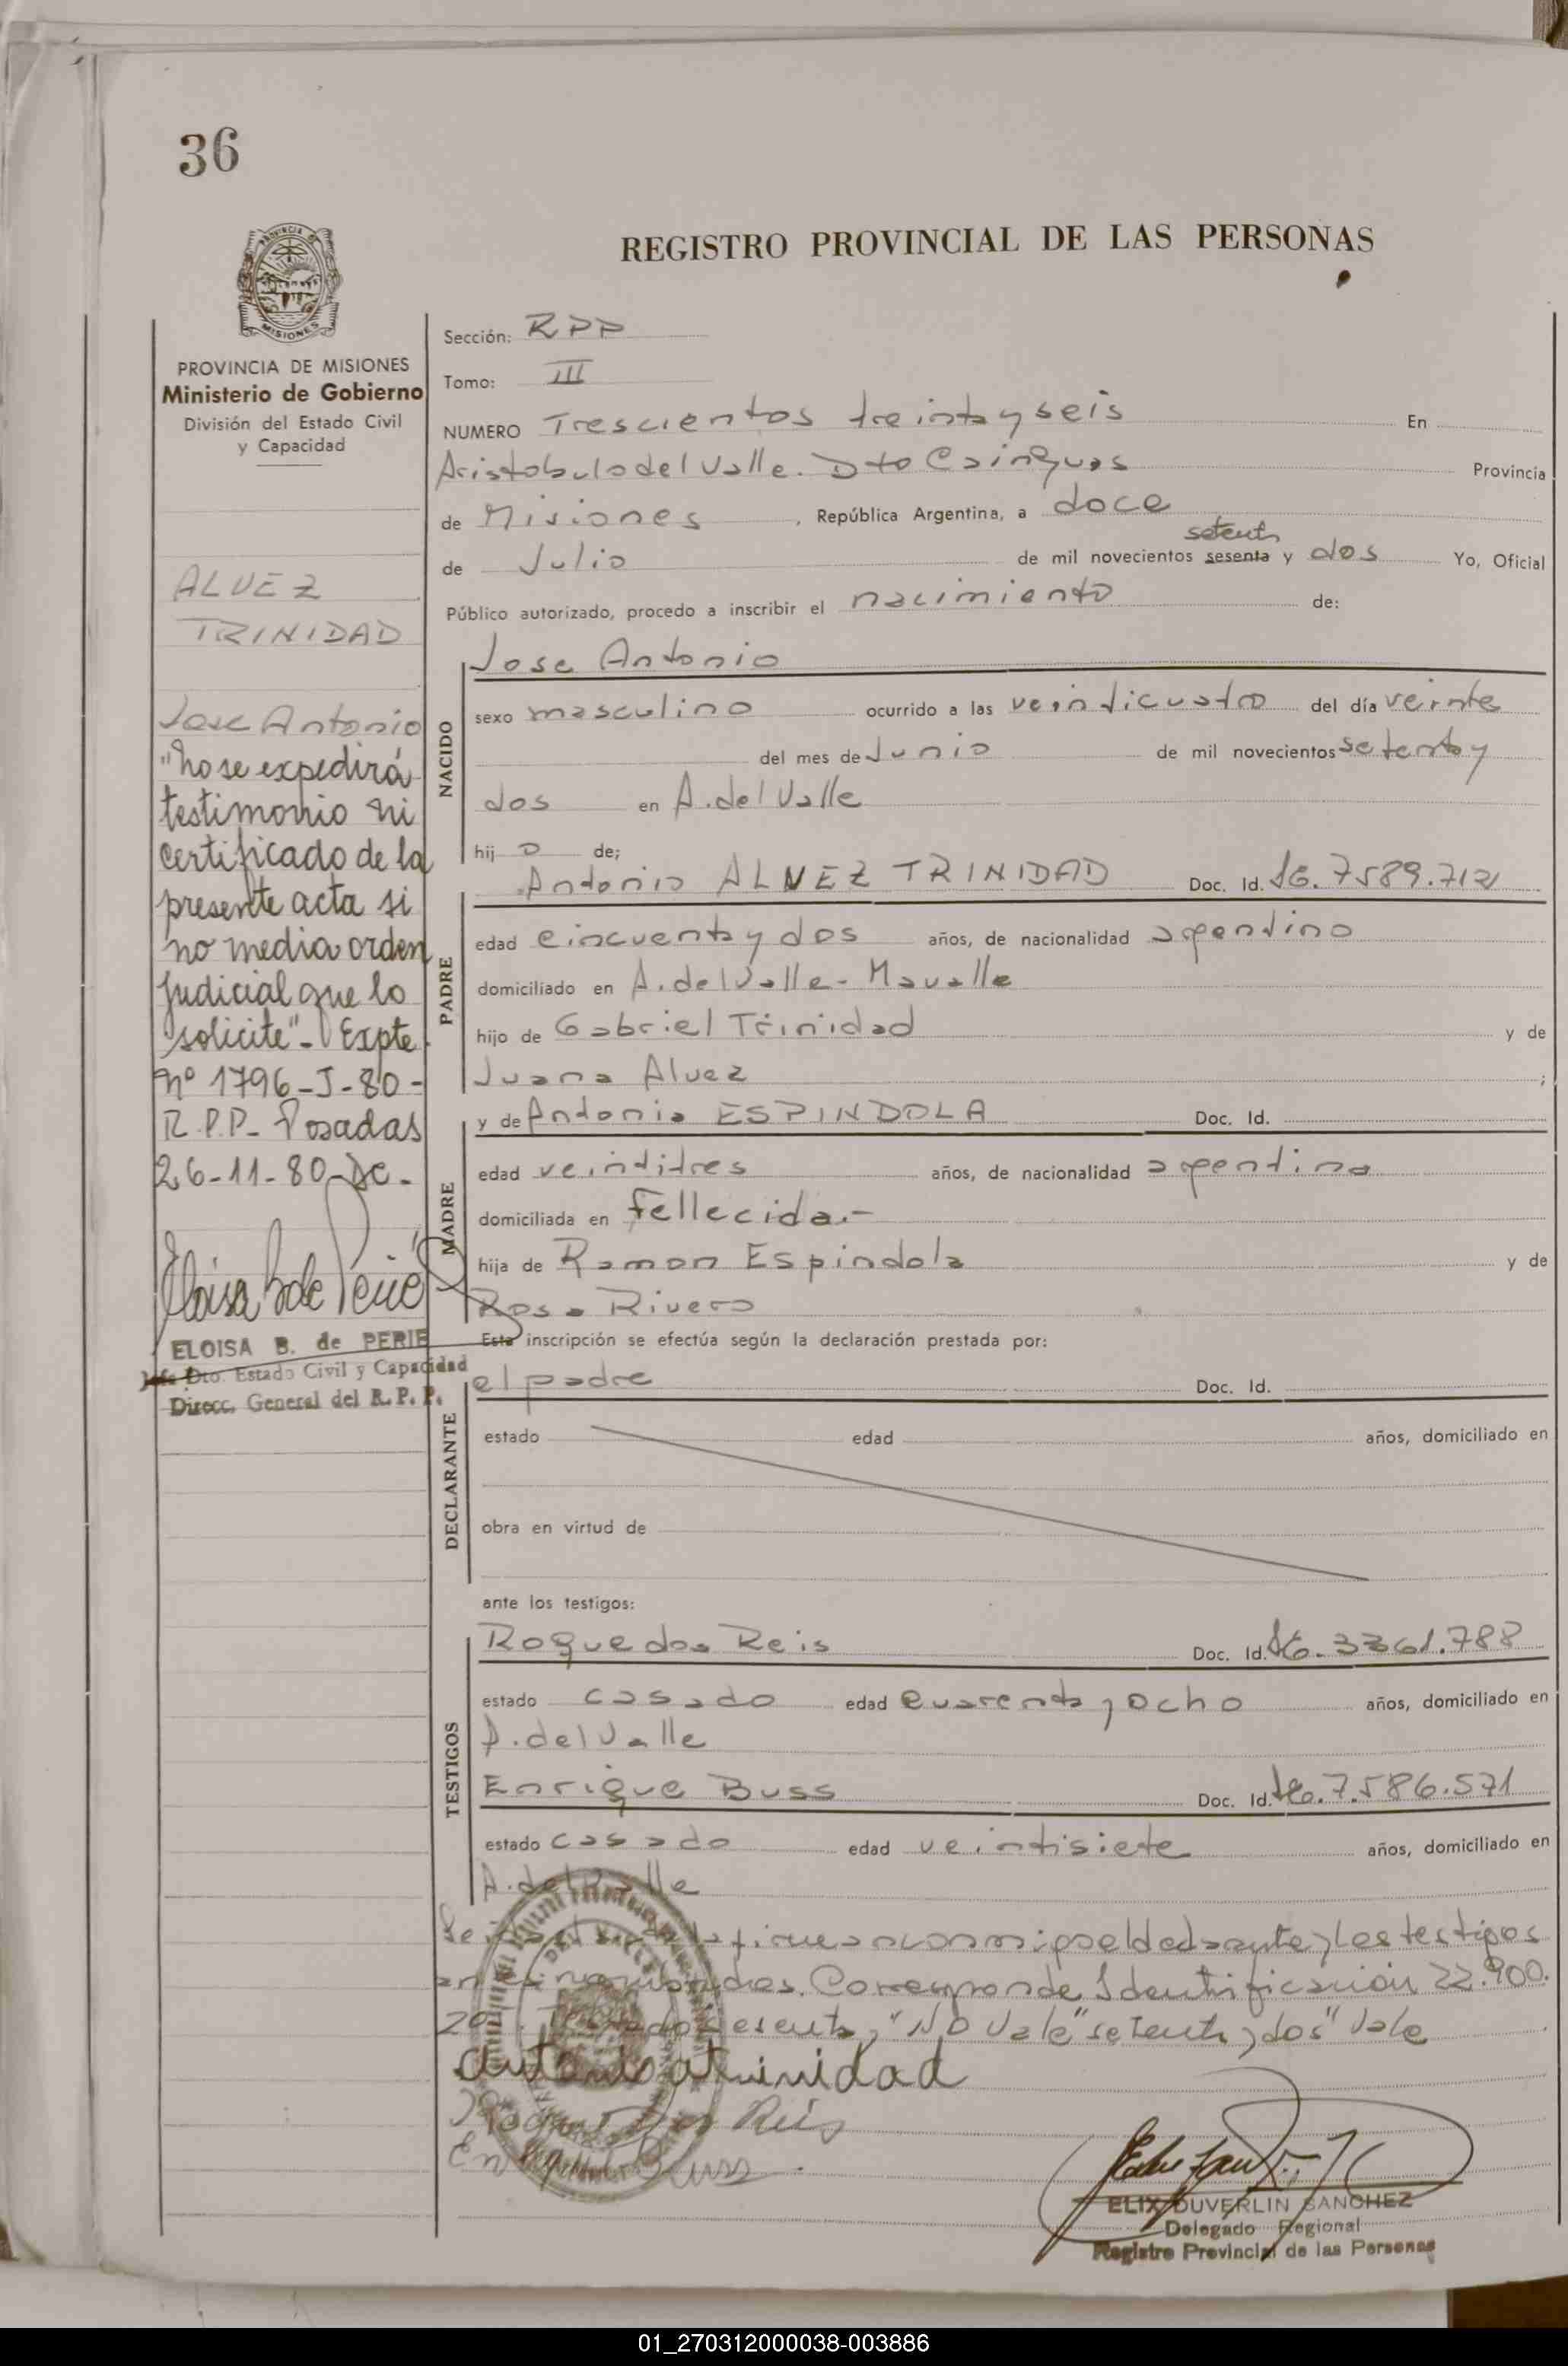 36
REGISTRO PROVINCIAL DE LAS PERSONAS
PROVINCIA DE MISIONES
Ministerio de Gobierno
División del Estado Civil
y Capacidad
ALVEZ
TRINIDAD
Jose Antonio
"no se expedirá
testimonio ni
certificado de la
presente acta si
no media orden
judicial que lo
solicite"- Expte
nº 1796-J-80-
R.P.P- Posadas
26-11-80-
ELOISA B. de PERIE
Jefe Dto. Estado Civil y Capacidad
Direcc. General del R. P. P.
Sección: RPP
Tomo: III
NUMERO Trescientos treinta y seis En
Aristobulo del Valle. Dto Cainguas Provincia
de Misiones, República Argentina, a doce
setenta
de Julio de mil novecientos sesenta y dos Yo, Oficial
Público autorizado, procedo a inscribir el nacimiento de:
NACIDO
Jose Antonio
sexo masculino ocurrido a las veinticuatro del día veinte
del mes de Junio de mil novecientos setenta y
dos en A. del Valle
hijo de;
PADRE
Antonio ALVEZ TRINIDAD Doc. Id. 7589.712
edad cincuenta y dos años, de nacionalidad argentino
domiciliado en A. del Valle-
hijo de Gabriel Trinidad y de
Juana Alvez ;
MADRE
y de Antonia ESPINDOLA Doc. Id.
edad veintitres años, de nacionalidad argentina
domiciliada en Fellecida.-
hija de Ramon Espindola y de
Rosa Rivero
Esta inscripción se efectúa según la declaración prestada por:
DECLARANTE
el padre Doc. Id.
estado edad años, domiciliado en
obra en virtud de
ante los testigos:
TESTIGOS
Roque dos Reis Doc. Id. 3361.788
estado casado edad cuarenta y ocho años, domiciliado en
A. del Valle
Enrique Buss Doc. Id. 7.586.571
estado casado edad veintisiete años, domiciliado en
A. del Valle
firman conmigo el declarante y los testigos
Corresponde Identificación 22.900.
sesenta, "No Vale" setenta y dos" Vale
antonio a trinidad
dos Reis
Enrique Buss
ELIX DUVERLIN SANCHEZ
Delegado Regional
Registro Provincial de las Personas
01_270312000038-003886